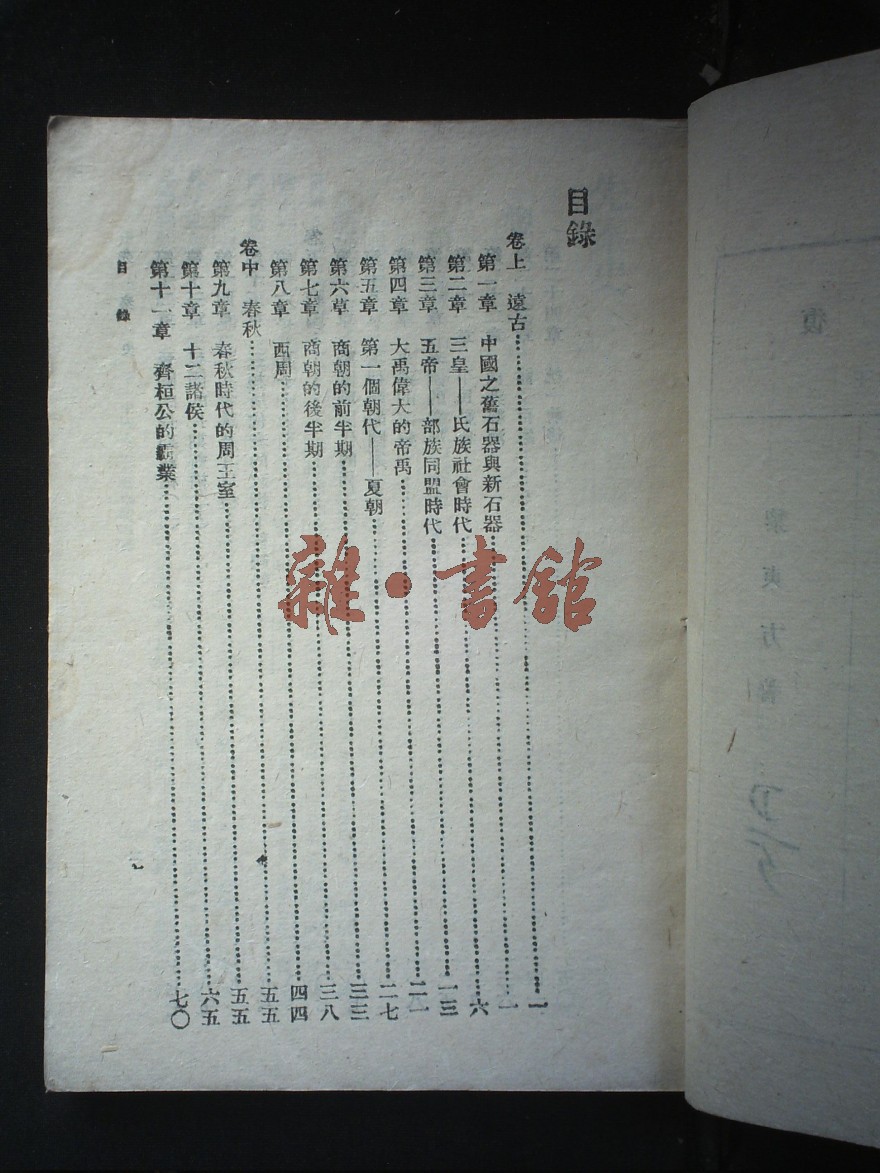 目錄
卷上 遠古…………一
第一章 中國之舊石器與新石器…………一
第二章 三皇——氏族社會時代…………六
第三章 五帝——部族同盟時代…………一三
第四章 大禹偉大的帝禹…………二一
第五章 第一個朝代——夏朝…………二七
第六章 商朝的前半期…………三三
第七章 商朝的後半期…………三八
第八章 西周…………四四
卷中 春秋…………五五
第九章 春秋時代的周王室…………五五
第十章 十二諸侯…………六五
第十一章 齊桓公的霸業…………七〇
目錄
雜·書館